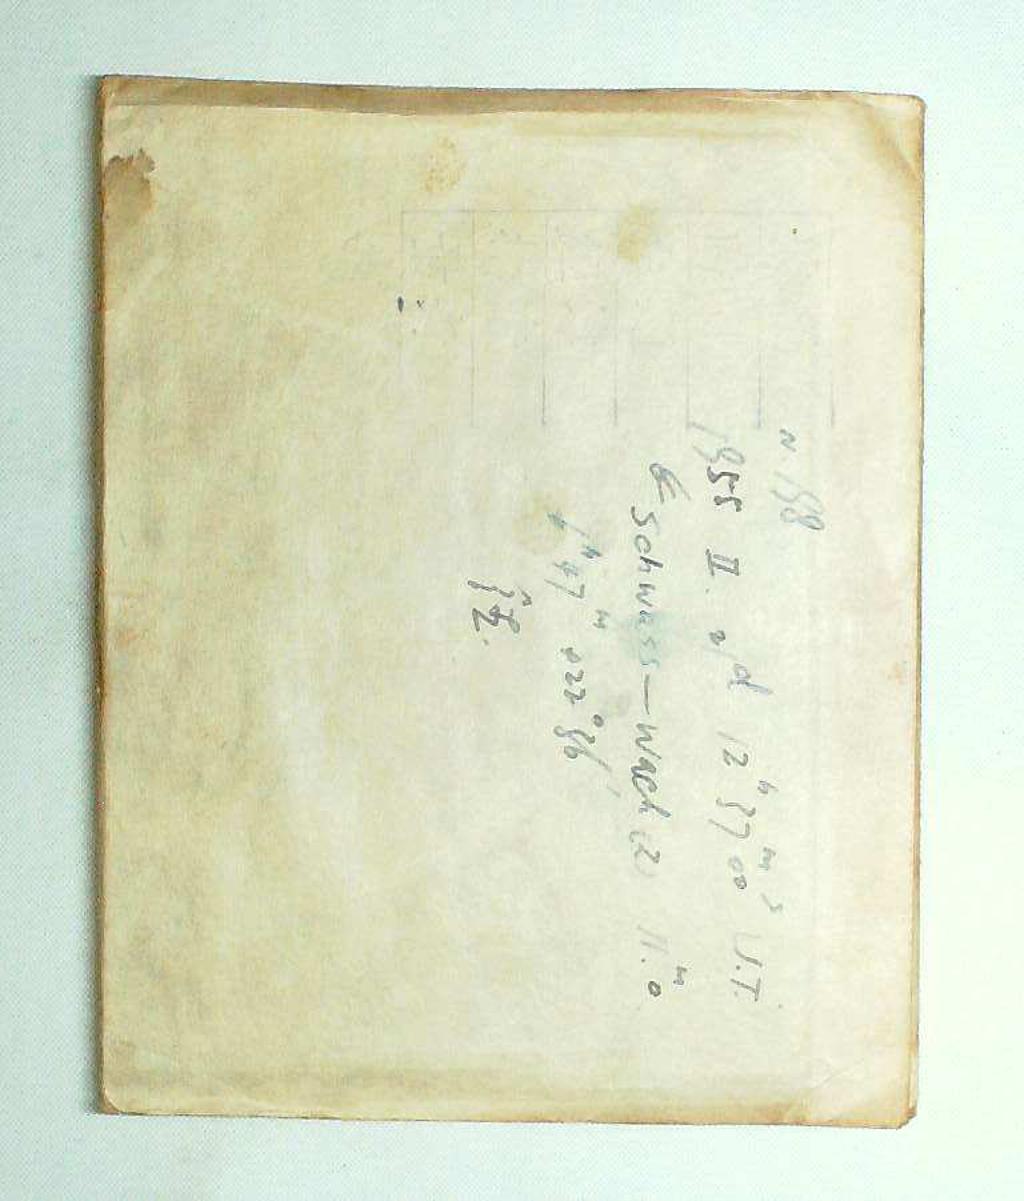 N 198
1955 II. 21d 12h 37m 00s U.T.
Schwass—Wach (2) 11.m0
6h 47m +22°36'